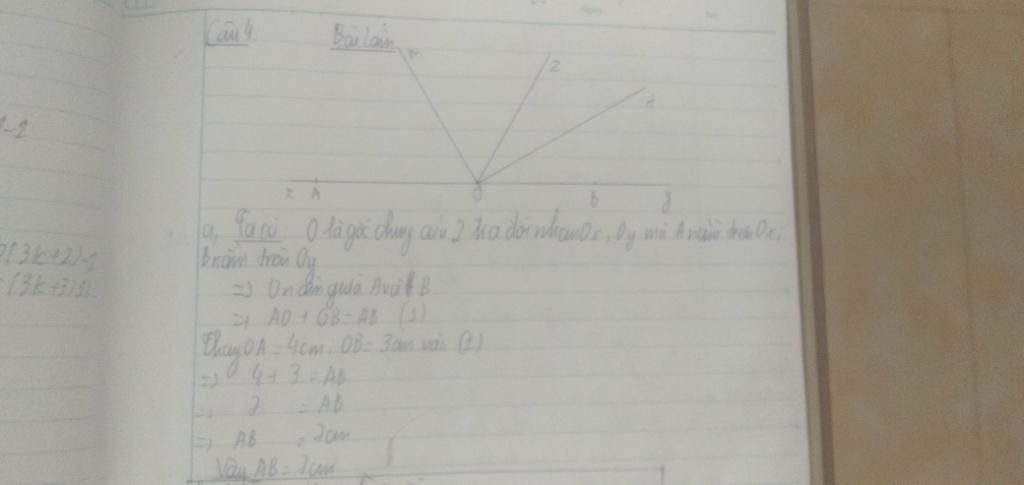 -1
Câu 4. Bài làm
z
A O B y
a, Ta có: O là gốc chung của 2 tia đối nhau Ox, Oy mà A nằm trên Ox,
B nằm trên Oy
=> O nằm giữa A và B
=> AO + OB = AB (1)
(3k+2)-1
(3k+3)
Thay OA = 4cm, OB = 3cm vào (1)
=> 4 + 3 = AB
7 = AB
=> AB = 7cm
Vậy AB = 7cm